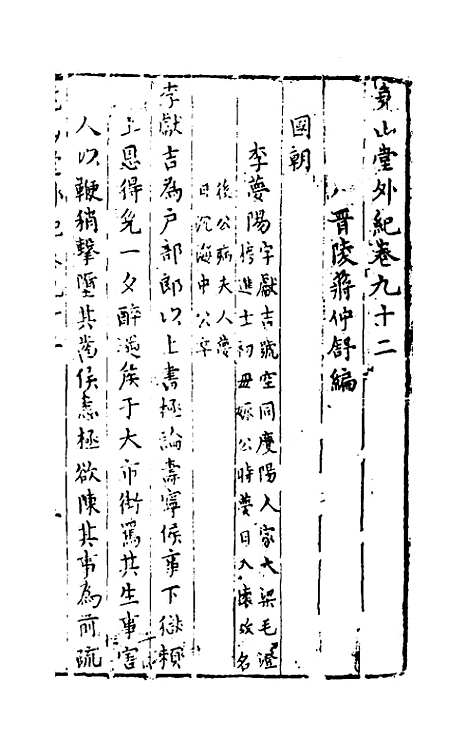 堯山堂外紀卷九十二
八晋陵蔣仲舒編
國朝
李夢陽
字獻吉號空同慶陽人家大梁毛澄
榜進士初母娠公時夢日入懷故名
後公病夫人夢
日沉海中公卒
李獻吉為戶部郎以上書極論壽寧侯事下獄賴
上恩得免一夕醉遇侯于大市街罵其生事害
人以鞭稍擊墮其齒侯恚極欲陳其事為前疏